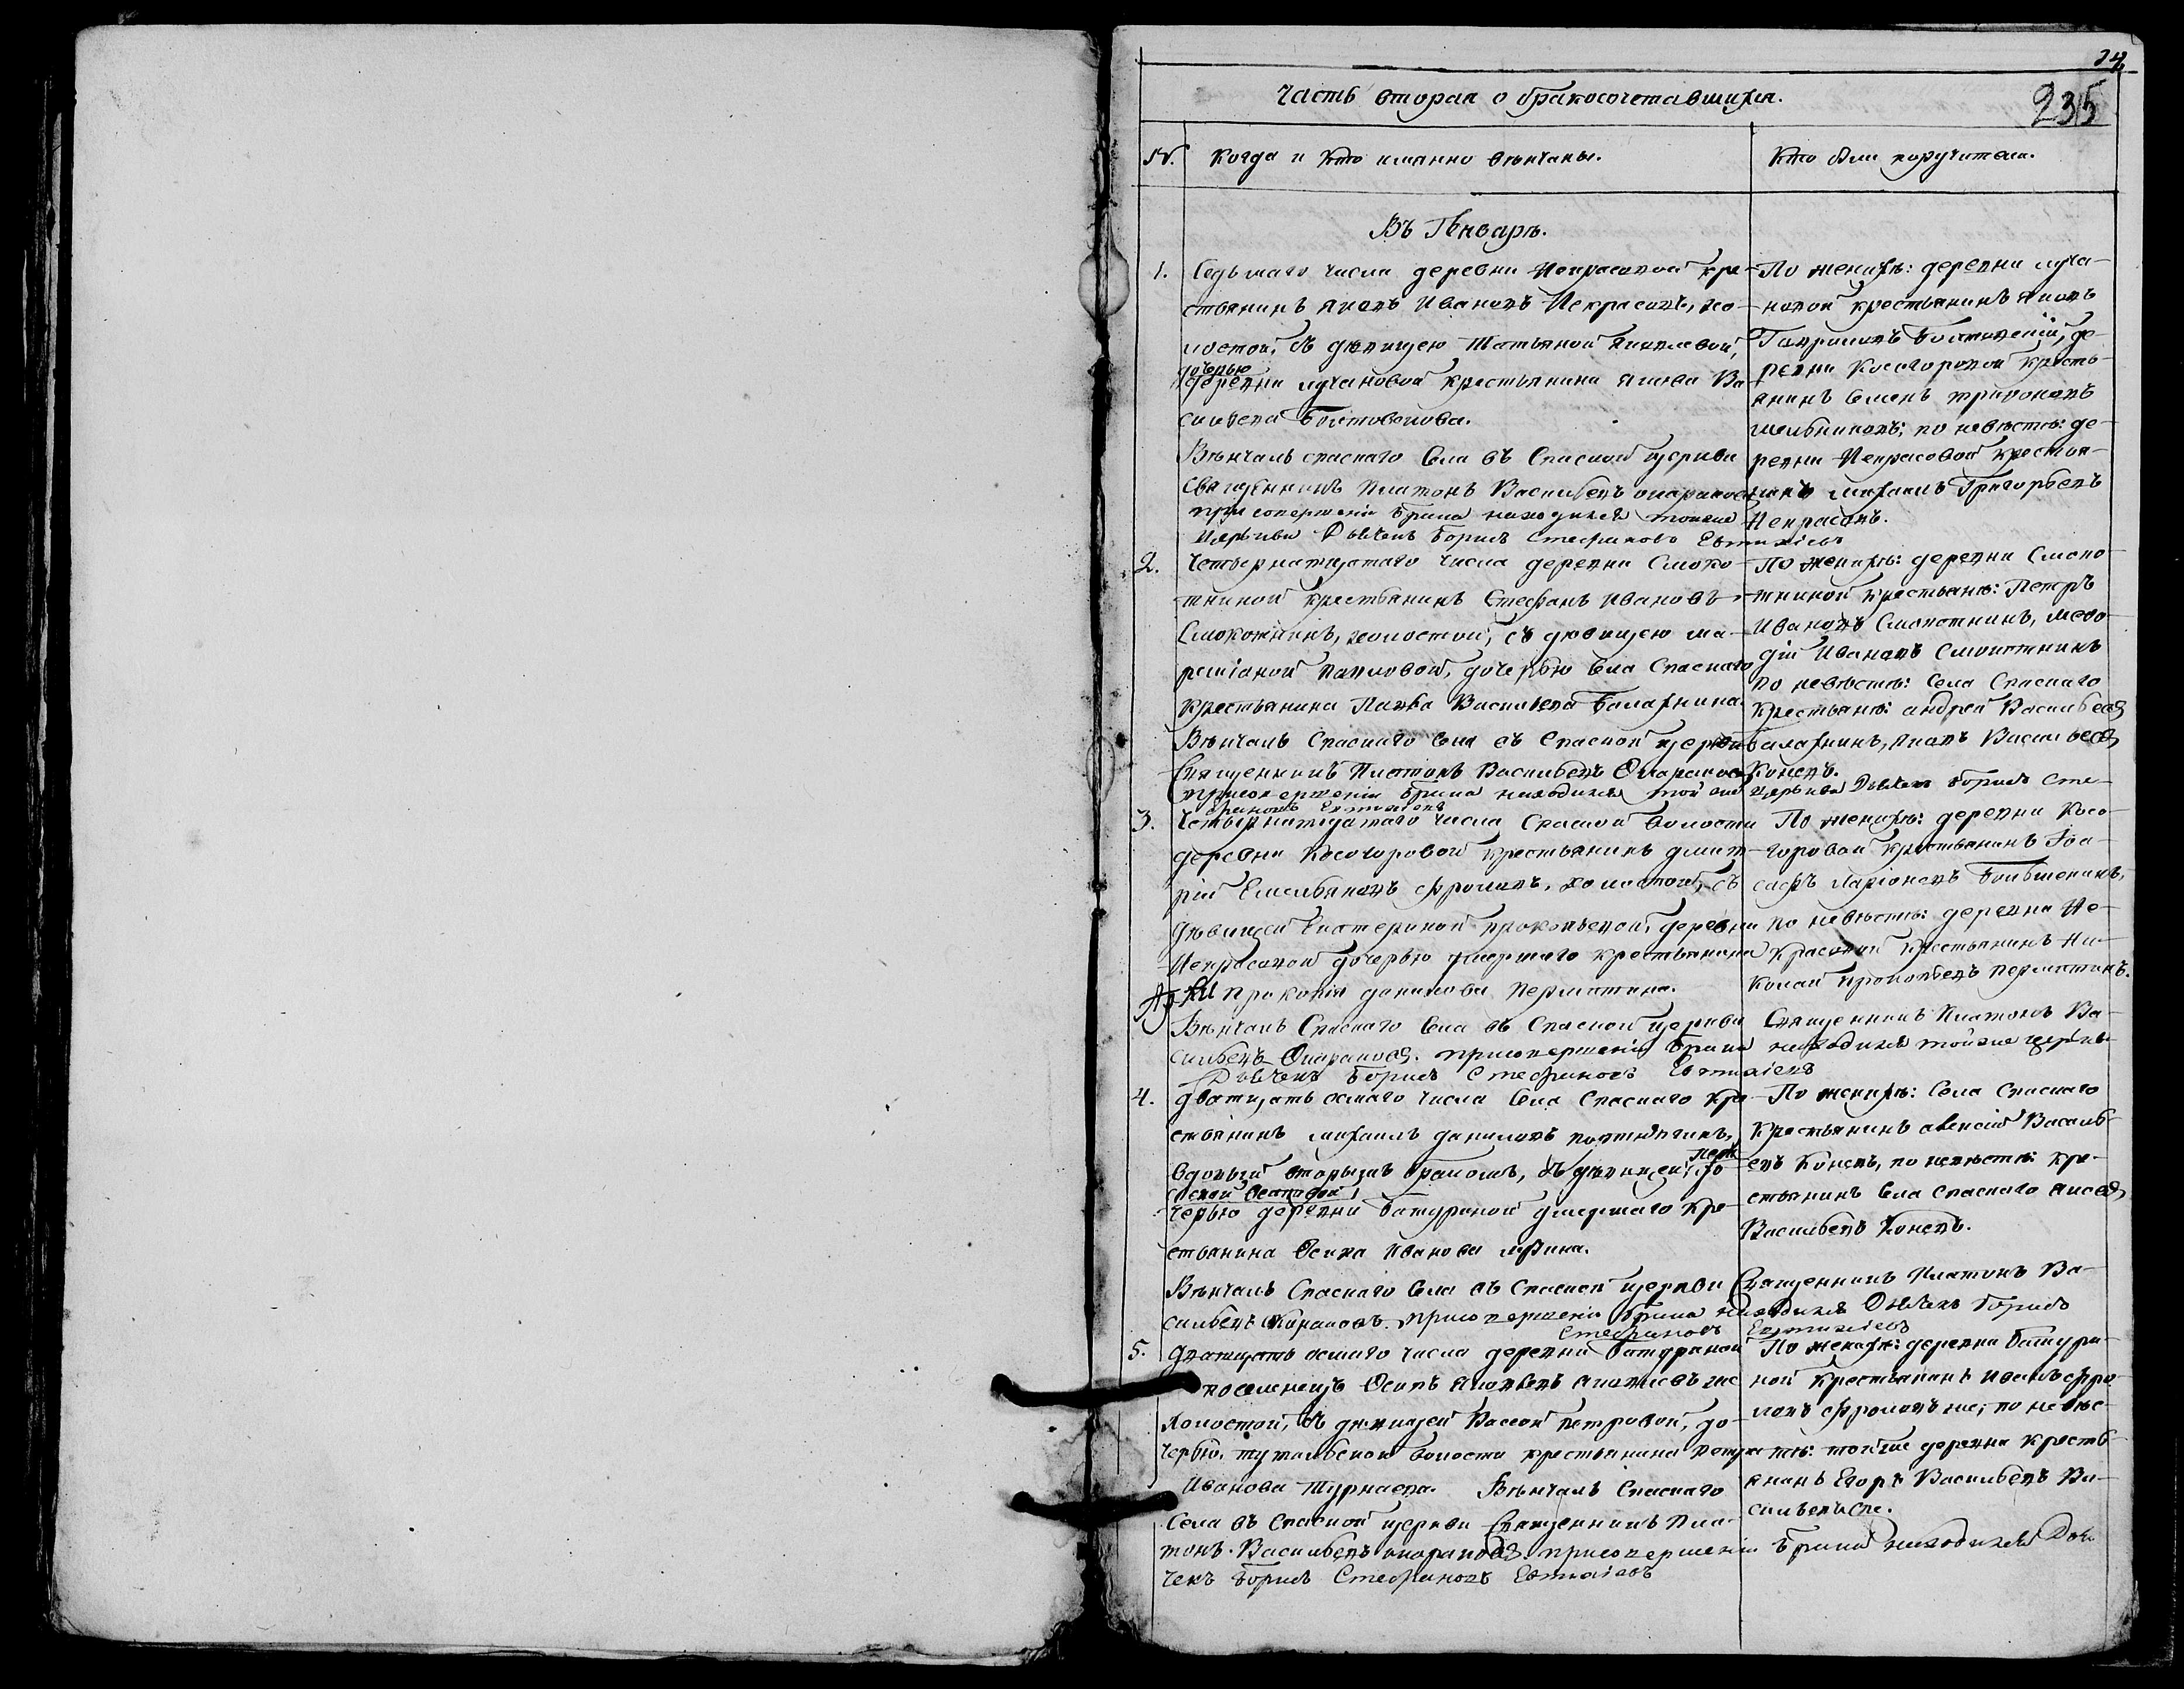 34
Часть вторая о бракосочетавшихся.
235
№. Когда и кто именно вѣнчаны.
Кто были поручители.
Въ Генварѣ.
1. Седьмаго числа деревни Некрасовой кре-
стьянинъ Яковъ Ивановъ Некрасовъ, хо-
лостой, съ дѣвицею Татьяной Яковлевой,
дочерью
деревни лучановой крестьянина Якова Ва-
сильева Болтовскова.
Вѣнчалъ спаскаго села въ Спаской церкви
священникъ Платонъ Васильевъ
при совершеніи брака находился тойже
церькви Дьячекъ Борисъ Стефановъ Евтихіевъ
По женихѣ: деревни луча-
новой крестьянинъ Яковъ
Гавриловъ Болтовскій, де-
ревни Косогоровой кресть-
янинъ Семенъ трифоновъ
мельниковъ; по невѣстѣ: де-
ревни Некрасовой крестья-
нинъ михаилъ Григорьевъ
Некрасовъ.
2. Четвернатцатаго числа деревни Смоко-
тниной крестьянинъ Стефанъ Ивановъ
Смокотнинъ, холостой, съ дѣвицею ма-
реміаной павловой, дочерью села Спаскаго
крестьянина Павла Васильева Балахнина.
Вѣнчалъ Спаскаго села въ Спаской церкви
Священникъ Платонъ Васильевъ
При совершеніи брака находился той же церькви Дьячекъ Борисъ Сте-
фановъ Евтихіевъ
По женихѣ: деревни Смоко-
тниной крестьяне: Петръ
Ивановъ Смокотнинъ, мефо-
дій Ивановъ Смокотнинъ
по невѣстѣ: села Спаскаго
крестьяне: андрей Васильевъ
балахнинъ, Яковъ Васильевъ
Коневъ.
3. Четвернатцатаго числа Спаской волости
деревни Косогоровой крестьянинъ дмит-
рій Емельяновъ фроловъ, холостой, съ
дѣвицей Екатериной прокопьевой, деревни
Некрасовой дочерью умершаго крестьянина
Прокопія данилова Пермотина.
Вѣнчалъ Спаскаго села въ Спаской церкви Священникъ Платонъ Ва-
сильевъ при совершеніи брака находился тойже церькви
Дьячекъ Борисъ Стефановъ Евтихіевъ
По женихѣ: деревни Косо-
горовой крестьянинъ Іоа-
сафъ ларіоновъ
по невѣстѣ: деревни Не-
красовой крестьянинъ Ни-
колай прокопьевъ пермотинъ.
4. дватцать осмаго числа села Спаскаго кре-
стьянинъ михаилъ даниловъ
вдовый вторымъ бракомъ, съ дѣвицей до-
Осиповой
черью деревни батуриной умершаго кре-
стьянина Осипа Иванова
Вѣнчалъ Спаскаго села въ Спаской церкви Священникъ Платонъ Ва-
сильевъ при совершеніи брака находился Дьячекъ Борисъ
Стефановъ Евтихіевъ
По женихѣ: Села Спаскаго
крестьянинъ алексій Василь-
евъ Коневъ, по невѣстѣ: кре-
стьянинъ села Спаскаго яковъ
Васильевъ Коневъ.
5. Дватцать осмаго числа деревни батуриной
поселенецъ Осипъ Яковлевъ Яковлевъ же
холостой, съ дѣвицей Вассой петровой, до-
черью, тутальской волости крестьянина петра
Иванова Турнаева. Вѣнчалъ Спаскаго
Села въ спаской церкви Священникъ Пла-
тонъ Васильевъ при совершеніи брака находился Дья-
чекъ Борисъ Стефановъ Евтихіевъ
По женихѣ: деревни батури-
ной крестьянинъ фро-
ловъ фроловъ же; по невѣс-
тѣ: тойже деревни кресть-
янинъ Егоръ Васильевъ Ва-
сильевъ же.